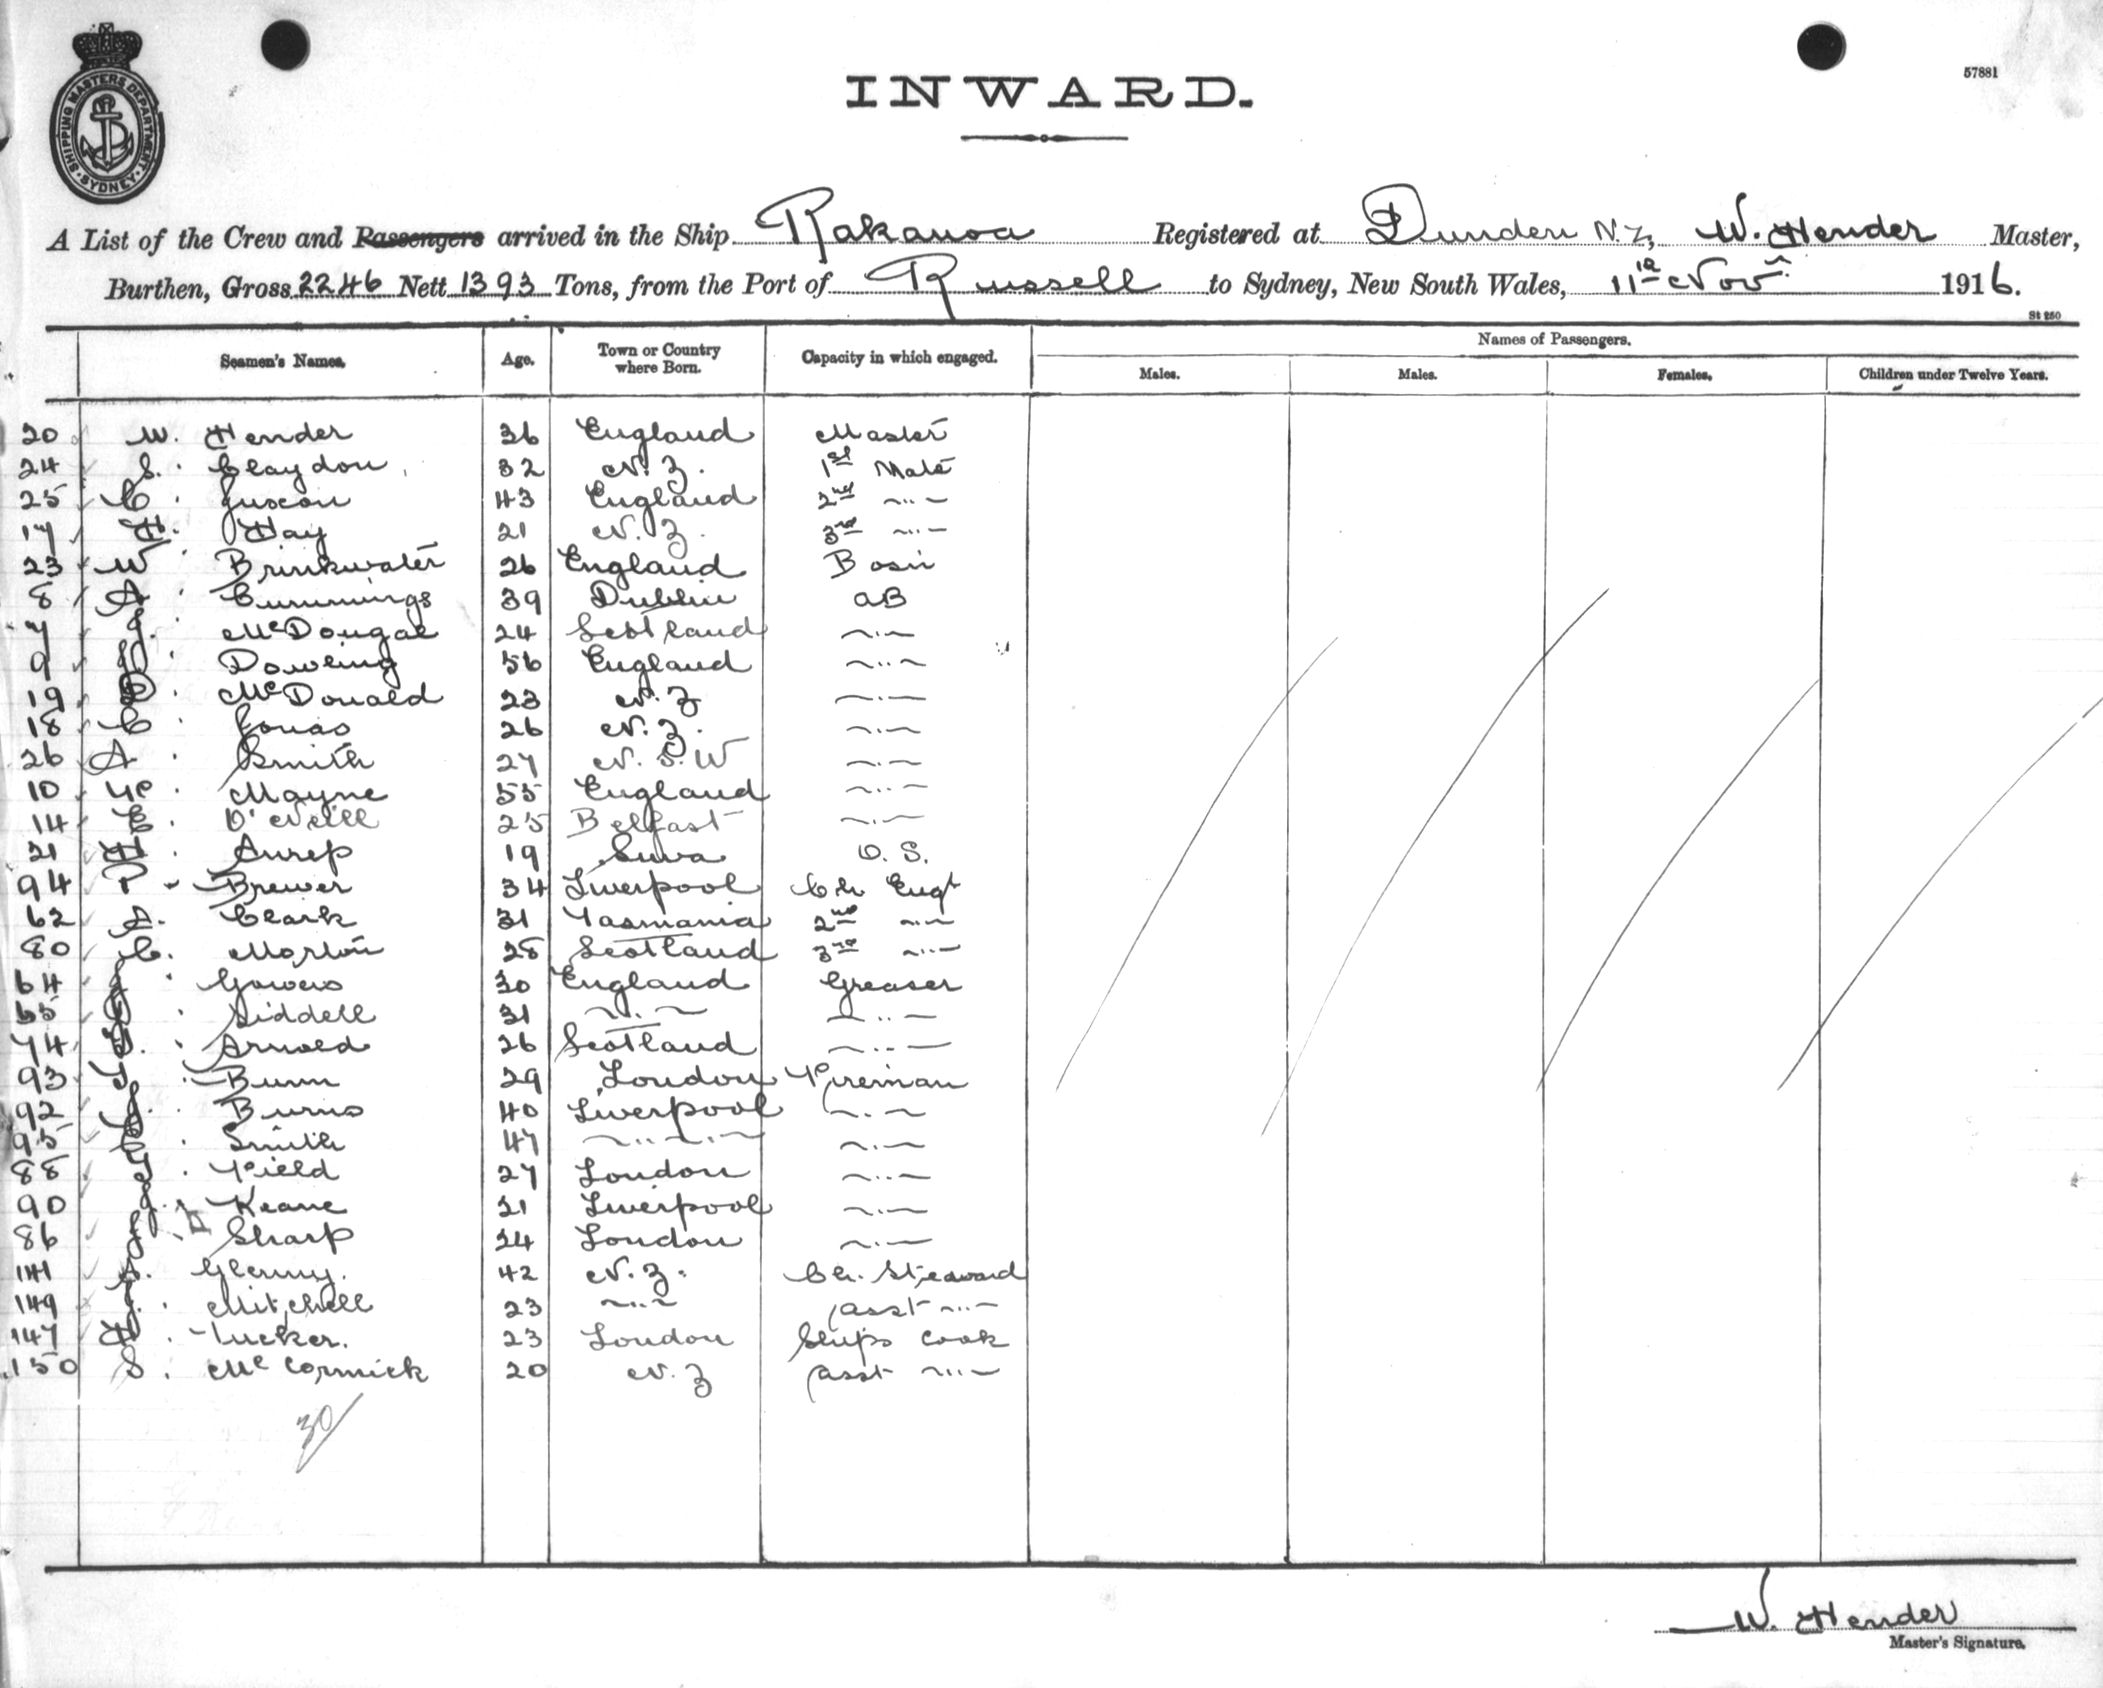 SHIPPING MASTERS DEPARTMENT
SYDNEY
57881
INWARD.
A List of the Crew and Passengers arrived in the Ship Rakanoa Registered at Dunedin N.Z, W. Hender Master,
Burthen, Gross 2246 Nett 1393 Tons, from the Port of Russell to Sydney, New South Wales, 11th Novr 1916.
St 250
Seamen's Names. Age. Town or Country where Born. Capacity in which engaged. Names of Passengers.
Males. Males. Females. Children under Twelve Years.
20 W. Hender 36 England Master
24 S. Claydon 32 N.Z. 1st Mate
25 C. Juxon 43 England 2nd -"-
17 H. Hay 21 N.Z. 3rd -"-
23 W. Brinkwater 26 England Bosn
8 A. Cummings 39 Dublin AB
7 McDougal 24 Scotland -"-
9 Dowling 56 England -"-
19 McDonald 23 N.Z -"-
18 C. Jonas 26 N.Z. -"-
26 A. Smith 27 N.S.W -"-
10 F. Mayne 55 England -"-
14 O'Neill 25 Belfast -"-
21 H. Anrep 19 Suva O.S.
94 P. Brewer 34 Liverpool Ch Engr
62 A. Clark 31 Tasmania 2nd -"-
80 C. Morton 28 Scotland 3rd -"-
64 J. Gowers 30 England Greaser
65 Siddell 31 -"- -"-
74 Arnold 26 Scotland -"-
93 Bunn 29 London Fireman
92 Burns 40 Liverpool -"-
95 Smith 47 -"- -"-
88 Field 27 London -"-
90 J. Keane 21 Liverpool -"-
86 J. Sharp 24 London -"-
141 Glenny. 42 N.Z. Ch. Steward
149 Mitchell 23 -"- asst -"-
147 H. Tucker. 23 London Ships Cook
150 S. McCormick 20 N.Z asst -"-
30
W. Hender
Master's Signature.